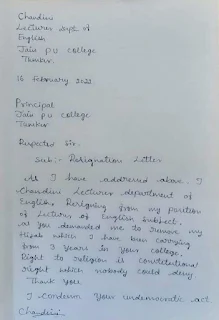 Chandini
Lecturer Dept of
English
Jain PU college
Tumkur.
16 February 2022
Principal
Jain PU college
Tumkur
Respected Sir.
Sub:- Resignation Letter
As I have addressed above. I
Chandini Lecturer department of
English, Resigning from my position
of Lecturer of English subject.
as you demanded me to remove my
Hijab which I have been carrying
from 3 years in your college.
Right to religion is constitutional
right which nobody could deny
Thank you.
I condemn your undemocratic act
Chandini